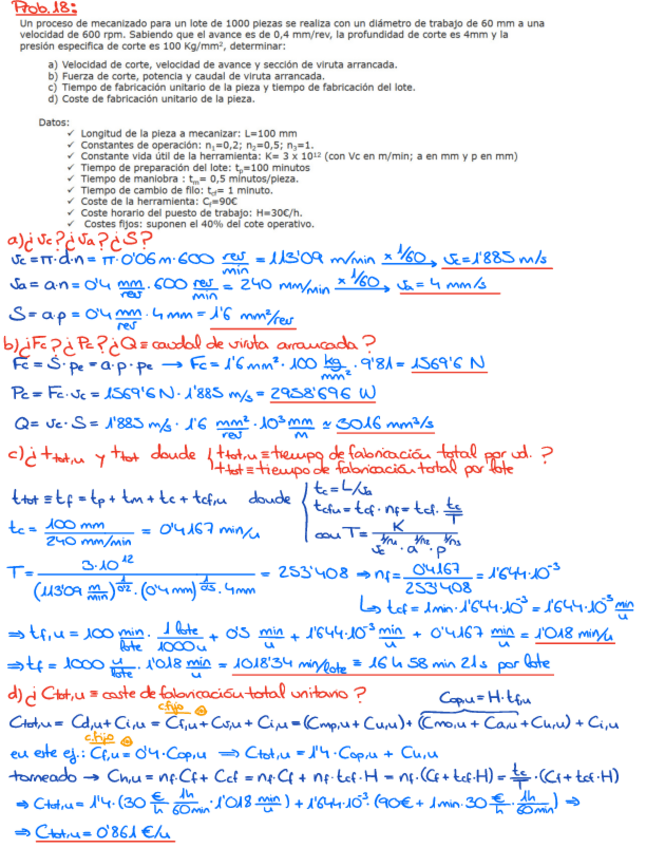 Prob.18:
Un proceso de mecanizado para un lote de 1000 piezas se realiza con un diámetro de trabajo de 60 mm a una
velocidad de 600 rpm. Sabiendo que el avance es de 0,4 mm/rev, la profundidad de corte es 4mm y la
presión especifica de corte es 100 Kg/mm², determinar:
a) Velocidad de corte, velocidad de avance y sección de viruta arrancada.
b) Fuerza de corte, potencia y caudal de viruta arrancada.
c) Tiempo de fabricación unitario de la pieza y tiempo de fabricación del lote.
d) Coste de fabricación unitario de la pieza.
Datos:
✓ Longitud de la pieza a mecanizar: L=100 mm
✓ Constantes de operación: n₁=0,2; n₂=0,5; n₃=1.
✓ Constante vida útil de la herramienta: K= 3 x 10¹² (con Vc en m/min; a en mm y p en mm)
✓ Tiempo de preparación del lote: tₚ=100 minutos
✓ Tiempo de maniobra : tₘ= 0,5 minutos/pieza.
✓ Tiempo de cambio de filo: t_cf= 1 minuto.
✓ Coste de la herramienta: C_f=90€
✓ Coste horario del puesto de trabajo: H=30€/h.
✓ Costes fijos: suponen el 40% del cote operativo.
a) ¿vc? ¿va? ¿S?
vc = π·d·n = π·0'06 m·600 rev/min = 113'09 m/min x 1/60 → vc = 1'885 m/s
va = a·n = 0'4 mm/rev · 600 rev/min = 240 mm/min x 1/60 → va = 4 mm/s
S = a·p = 0'4 mm/rev · 4 mm = 1'6 mm²/rev
b) ¿Fc? ¿Pc? ¿Q ≡ caudal de viruta arrancada?
Fc = S·pe = a·p·pe → Fc = 1'6 mm² · 100 kg/mm² · 9'81 = 1569'6 N
Pc = Fc·vc = 1569'6 N · 1'885 m/s = 2958'696 W
Q = vc·S = 1'885 m/s · 1'6 mm²/rev · 10³ mm/m ≈ 3016 mm³/s
c) ¿ttot,u y ttot donde { ttot,u ≡ tiempo de fabricación total por ud. ?
ttot ≡ tiempo de fabricación total por lote
ttot ≡ tf = tp + tm + tc + tcf,u donde { tc = L/va
tcfu = tcf · nf = tcf · tc/T
con T = K / (vc^(1/n1) · a^(1/n2) · p^(1/n3))
tc = 100 mm / 240 mm/min = 0'4167 min/u
T = 3·10¹² / ((113'09 m/min)^(1/0'2) · (0'4 mm)^(1/0'5) · 4mm) = 253'408 ⇒ nf = 0'4167/253'408 = 1'644·10⁻³
↳ tcf = 1min · 1'644·10⁻³ = 1'644·10⁻³ min/u
⇒ tf,u = 100 min/lote · 1 lote/1000u + 0'5 min/u + 1'644·10⁻³ min/u + 0'4167 min/u = 1'018 min/u
⇒ tf = 1000 u/lote · 1'018 min/u = 1018'34 min/lote ≡ 16 h 58 min 21s por lote
d) ¿Ctot,u ≡ coste de fabricación total unitario?
Cop,u = H·tf,u
c.fijo
Ctot,u = Cd,u + Ci,u = Cf,u + Cv,u + Ci,u = (Cmp,u + Cu,u) + (Cmo,u + Ca,u + Cu,u) + Ci,u
c.fijo
en este ej.: Cf,u = 0'4·Cop,u ⇒ Ctot,u = 1'4·Cop,u + Cu,u
torneado → Ch,u = nf·Cf + Ccf = nf·Cf + nf·tcf·H = nf·(Cf + tcf·H) = tc/T · (Cf + tcf·H)
⇒ Ctot,u = 1'4·(30 €/h · 1h/60min · 1'018 min/u) + 1'644·10⁻³·(90€ + 1min·30 €/h · 1h/60min) ⇒
⇒ Ctot,u = 0'861 €/u